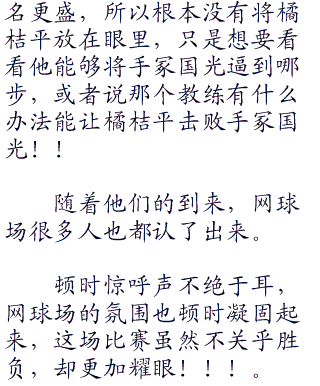 名更盛，所以根本没有将橘
桔平放在眼里，只是想要看
看他能够将手冢国光逼到哪
步，或者说那个教练有什么
办法能让橘桔平击败手冢国
光！！
随着他们的到来，网球
场很多人也都认了出来。
顿时惊呼声不绝于耳，
网球场的氛围也顿时凝固起
来，这场比赛虽然不关乎胜
负，却更加耀眼！！！。